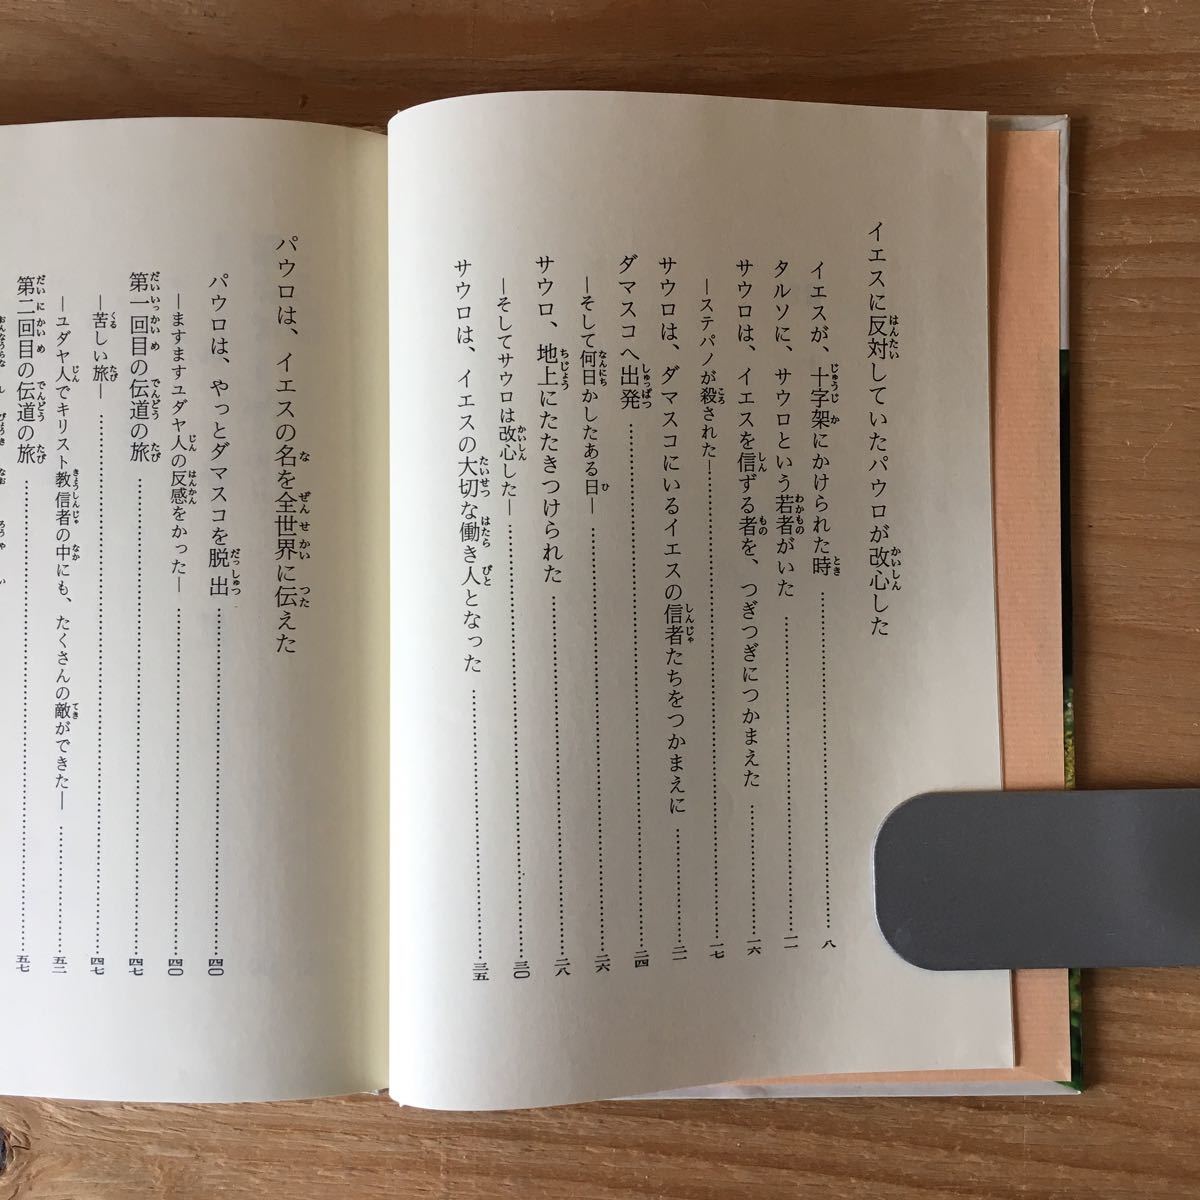 イエスに反対していたパウロが改心した
イエスが、十字架にかけられた時……八
タルソに、サウロという若者がいた……一一
サウロは、イエスを信ずる者を、つぎつぎにつかまえた……一六
―ステパノが殺された―……一七
サウロは、ダマスコにいるイエスの信者たちをつかまえに……二一
ダマスコへ出発……二四
―そして何日かしたある日―……二六
サウロ、地上にたたきつけられた……二八
―そしてサウロは改心した―……三〇
サウロは、イエスの大切な働き人となった……三五
パウロは、イエスの名を全世界に伝えた
パウロは、やっとダマスコを脱出……四〇
―ますますユダヤ人の反感をかった―……四〇
第一回目の伝道の旅……四七
―苦しい旅―……四七
―ユダヤ人でキリスト教信者の中にも、たくさんの敵ができた―……五二
第二回目の伝道の旅……五七